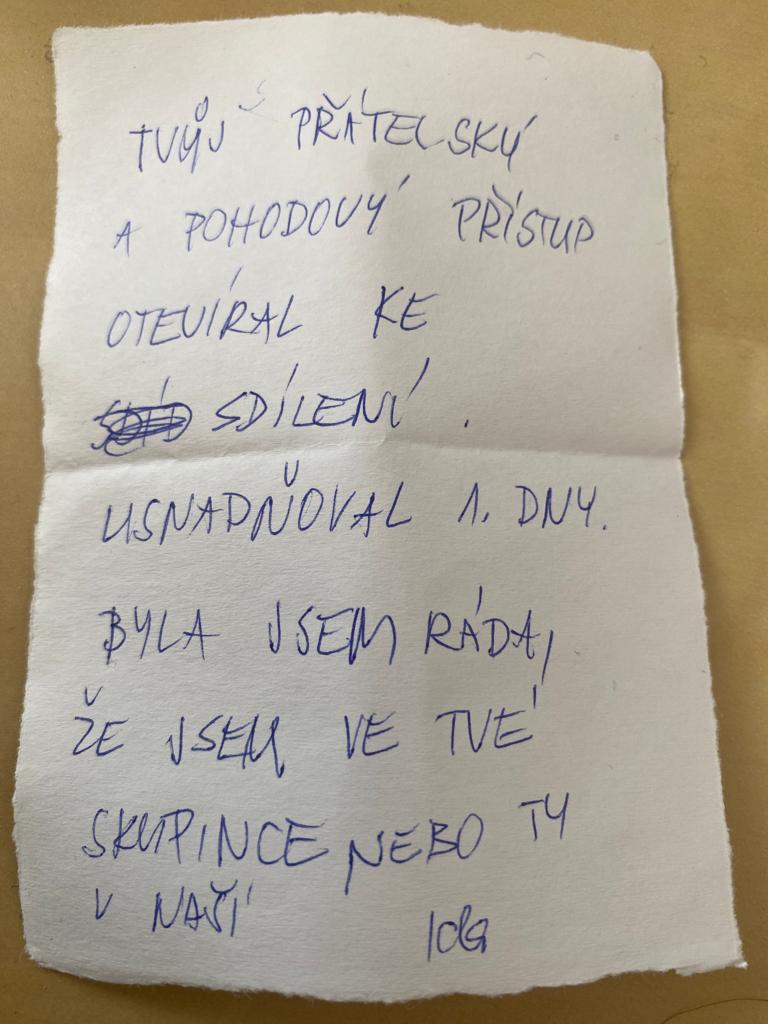 TVŮJ PŘÁTELSKÝ
A POHODOVÝ PŘÍSTUP
OTEVÍRAL KE
SDÍLENÍ.
USNADŇOVAL 1. DNY.
BYLA JSEM RÁDA,
ŽE JSEM VE TVÉ
SKUPINCE NEBO TY
V NAŠÍ